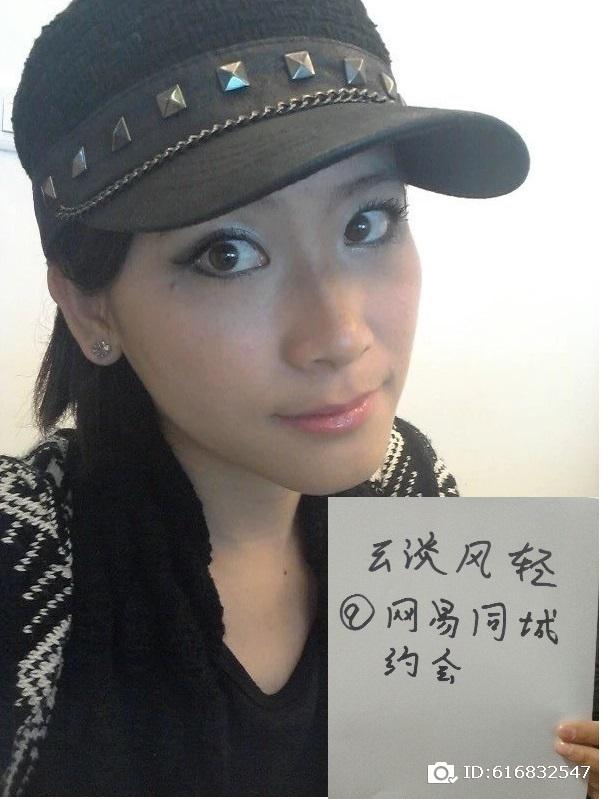 云淡风轻
@网易同城
约会
ID:616832547